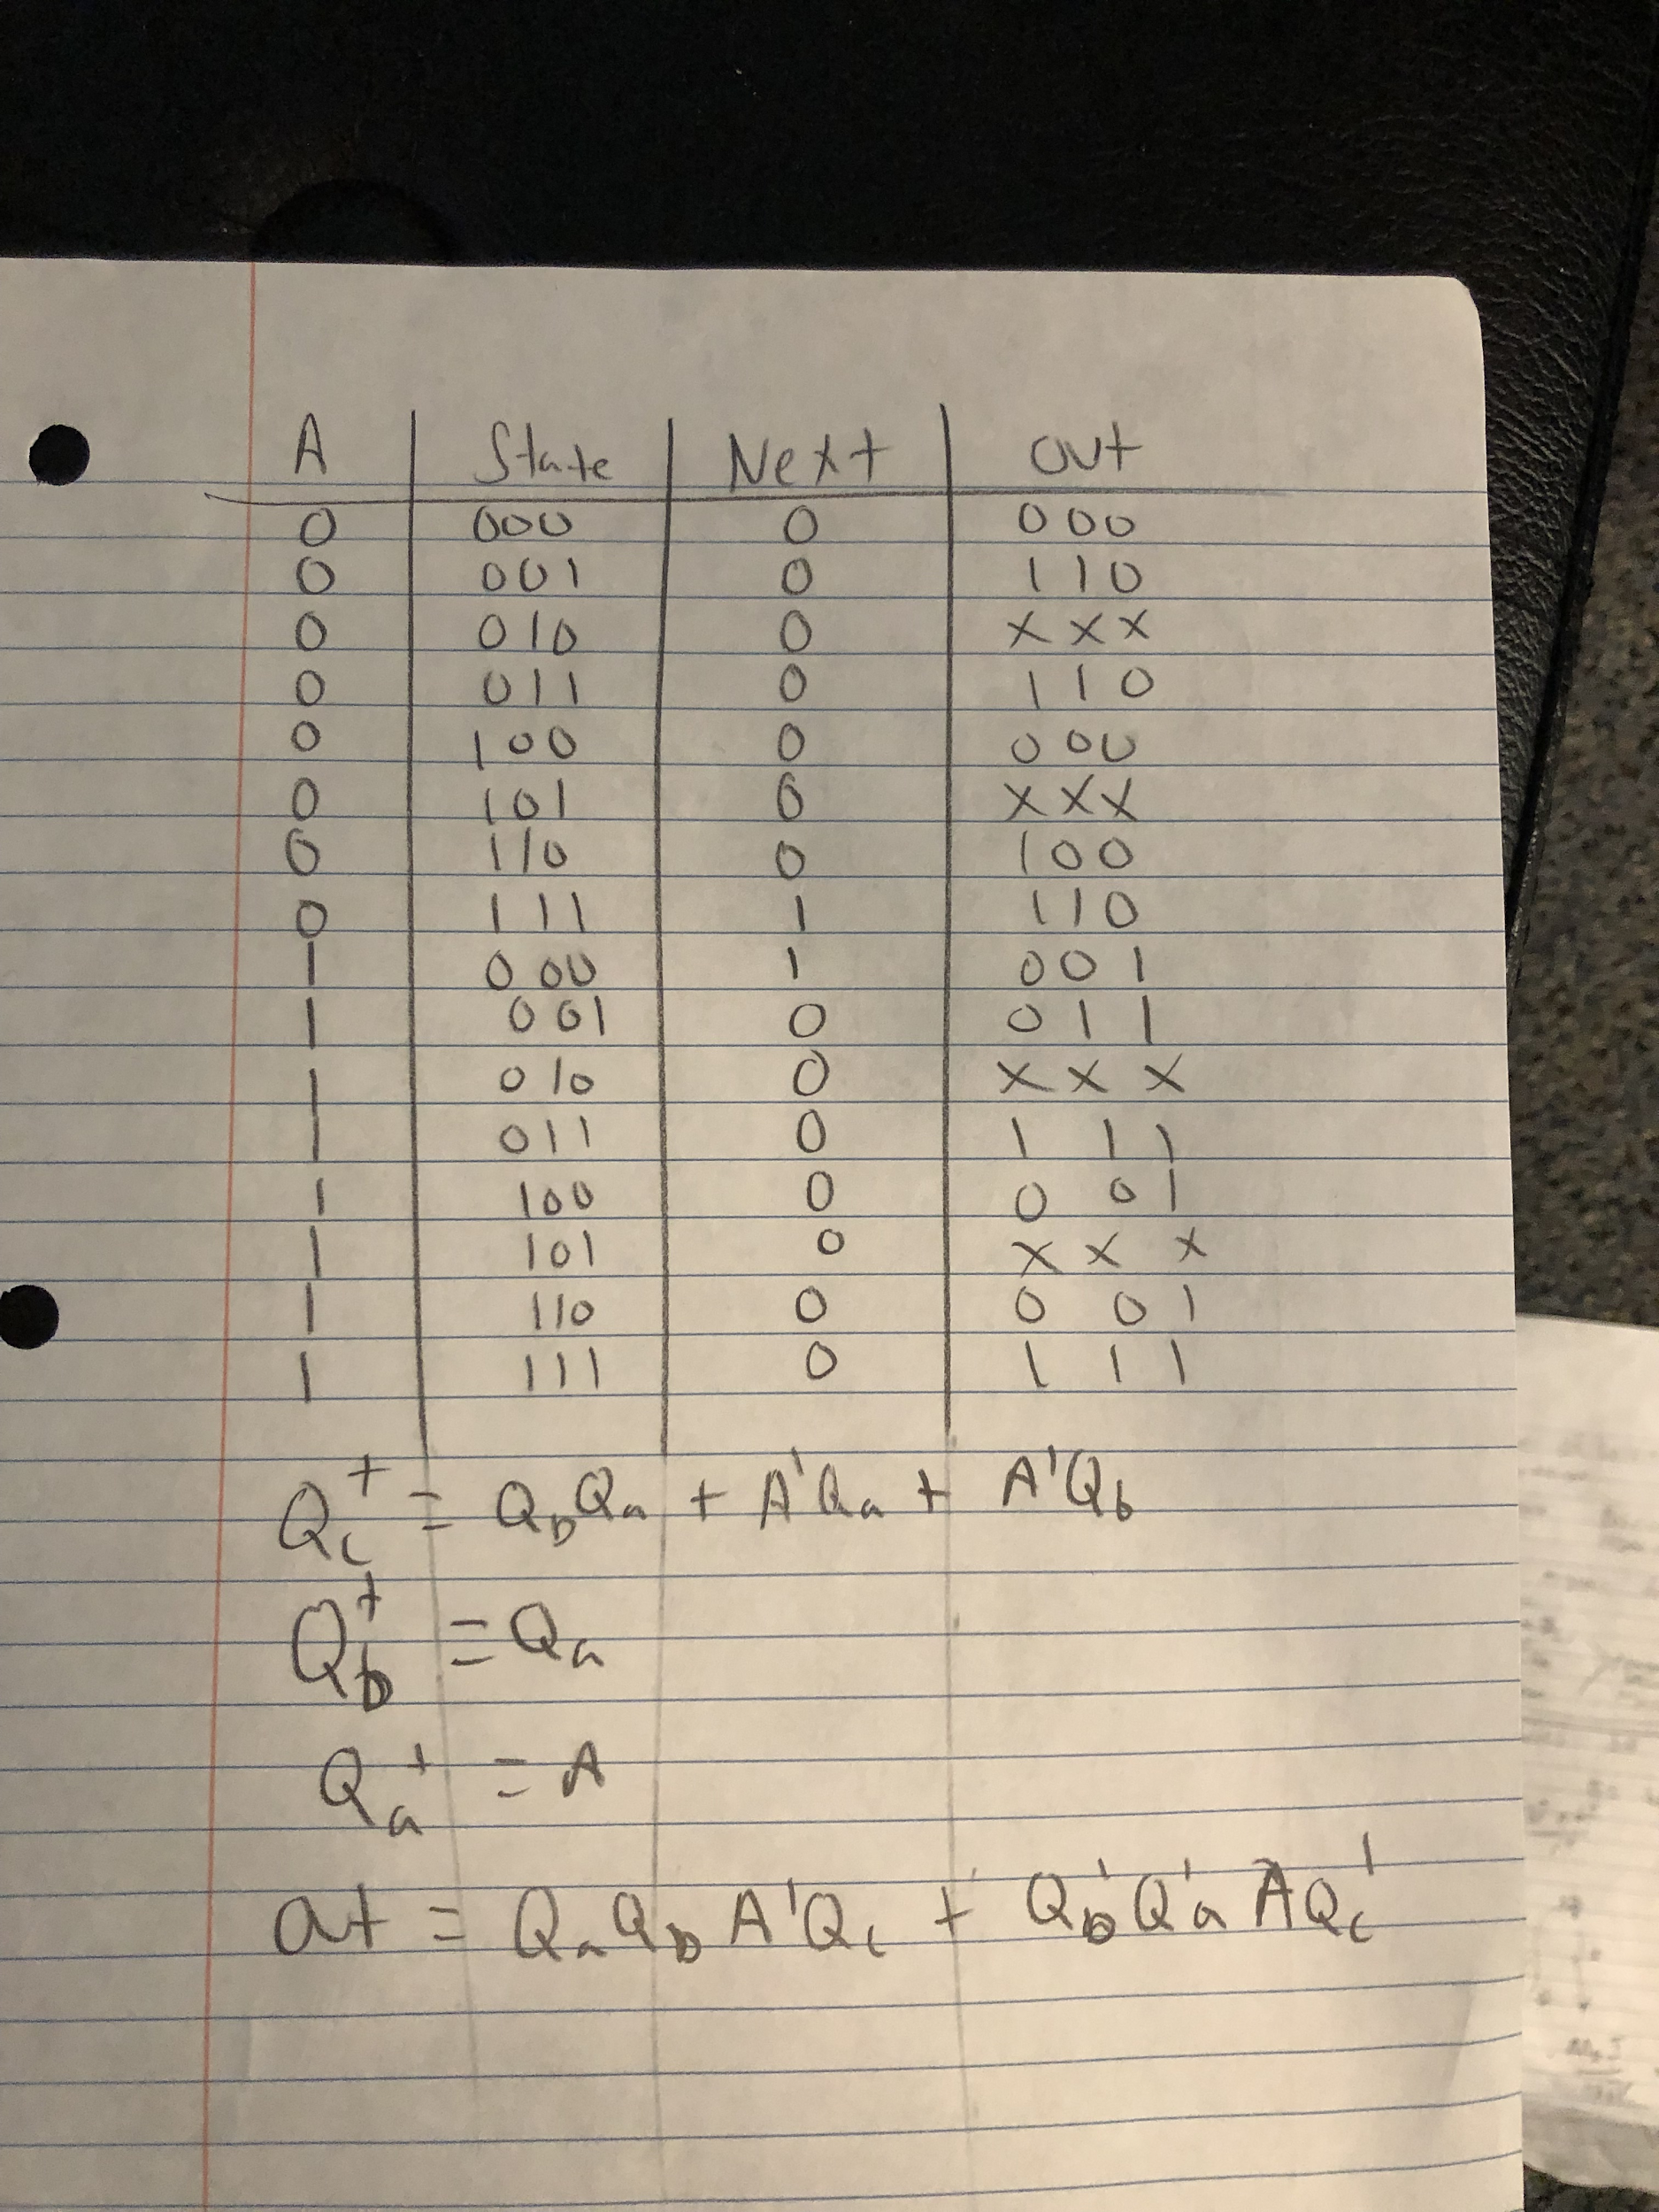 A State Next out
0 000 0 000
0 001 0 110
0 010 0 xxx
0 011 0 110
0 100 0 000
0 101 0 xxx
0 110 0 100
0 111 1 110
1 000 1 001
1 001 0 011
1 010 0 xxx
1 011 0 111
1 100 0 001
1 101 0 xxx
1 110 0 001
1 111 0 111
Qc+ = QbQa + A'Qa + A'Qb
Qb+ = Qa
Qa+ = A
out = QaQbA'Qc + Qb'Q'aAQc'